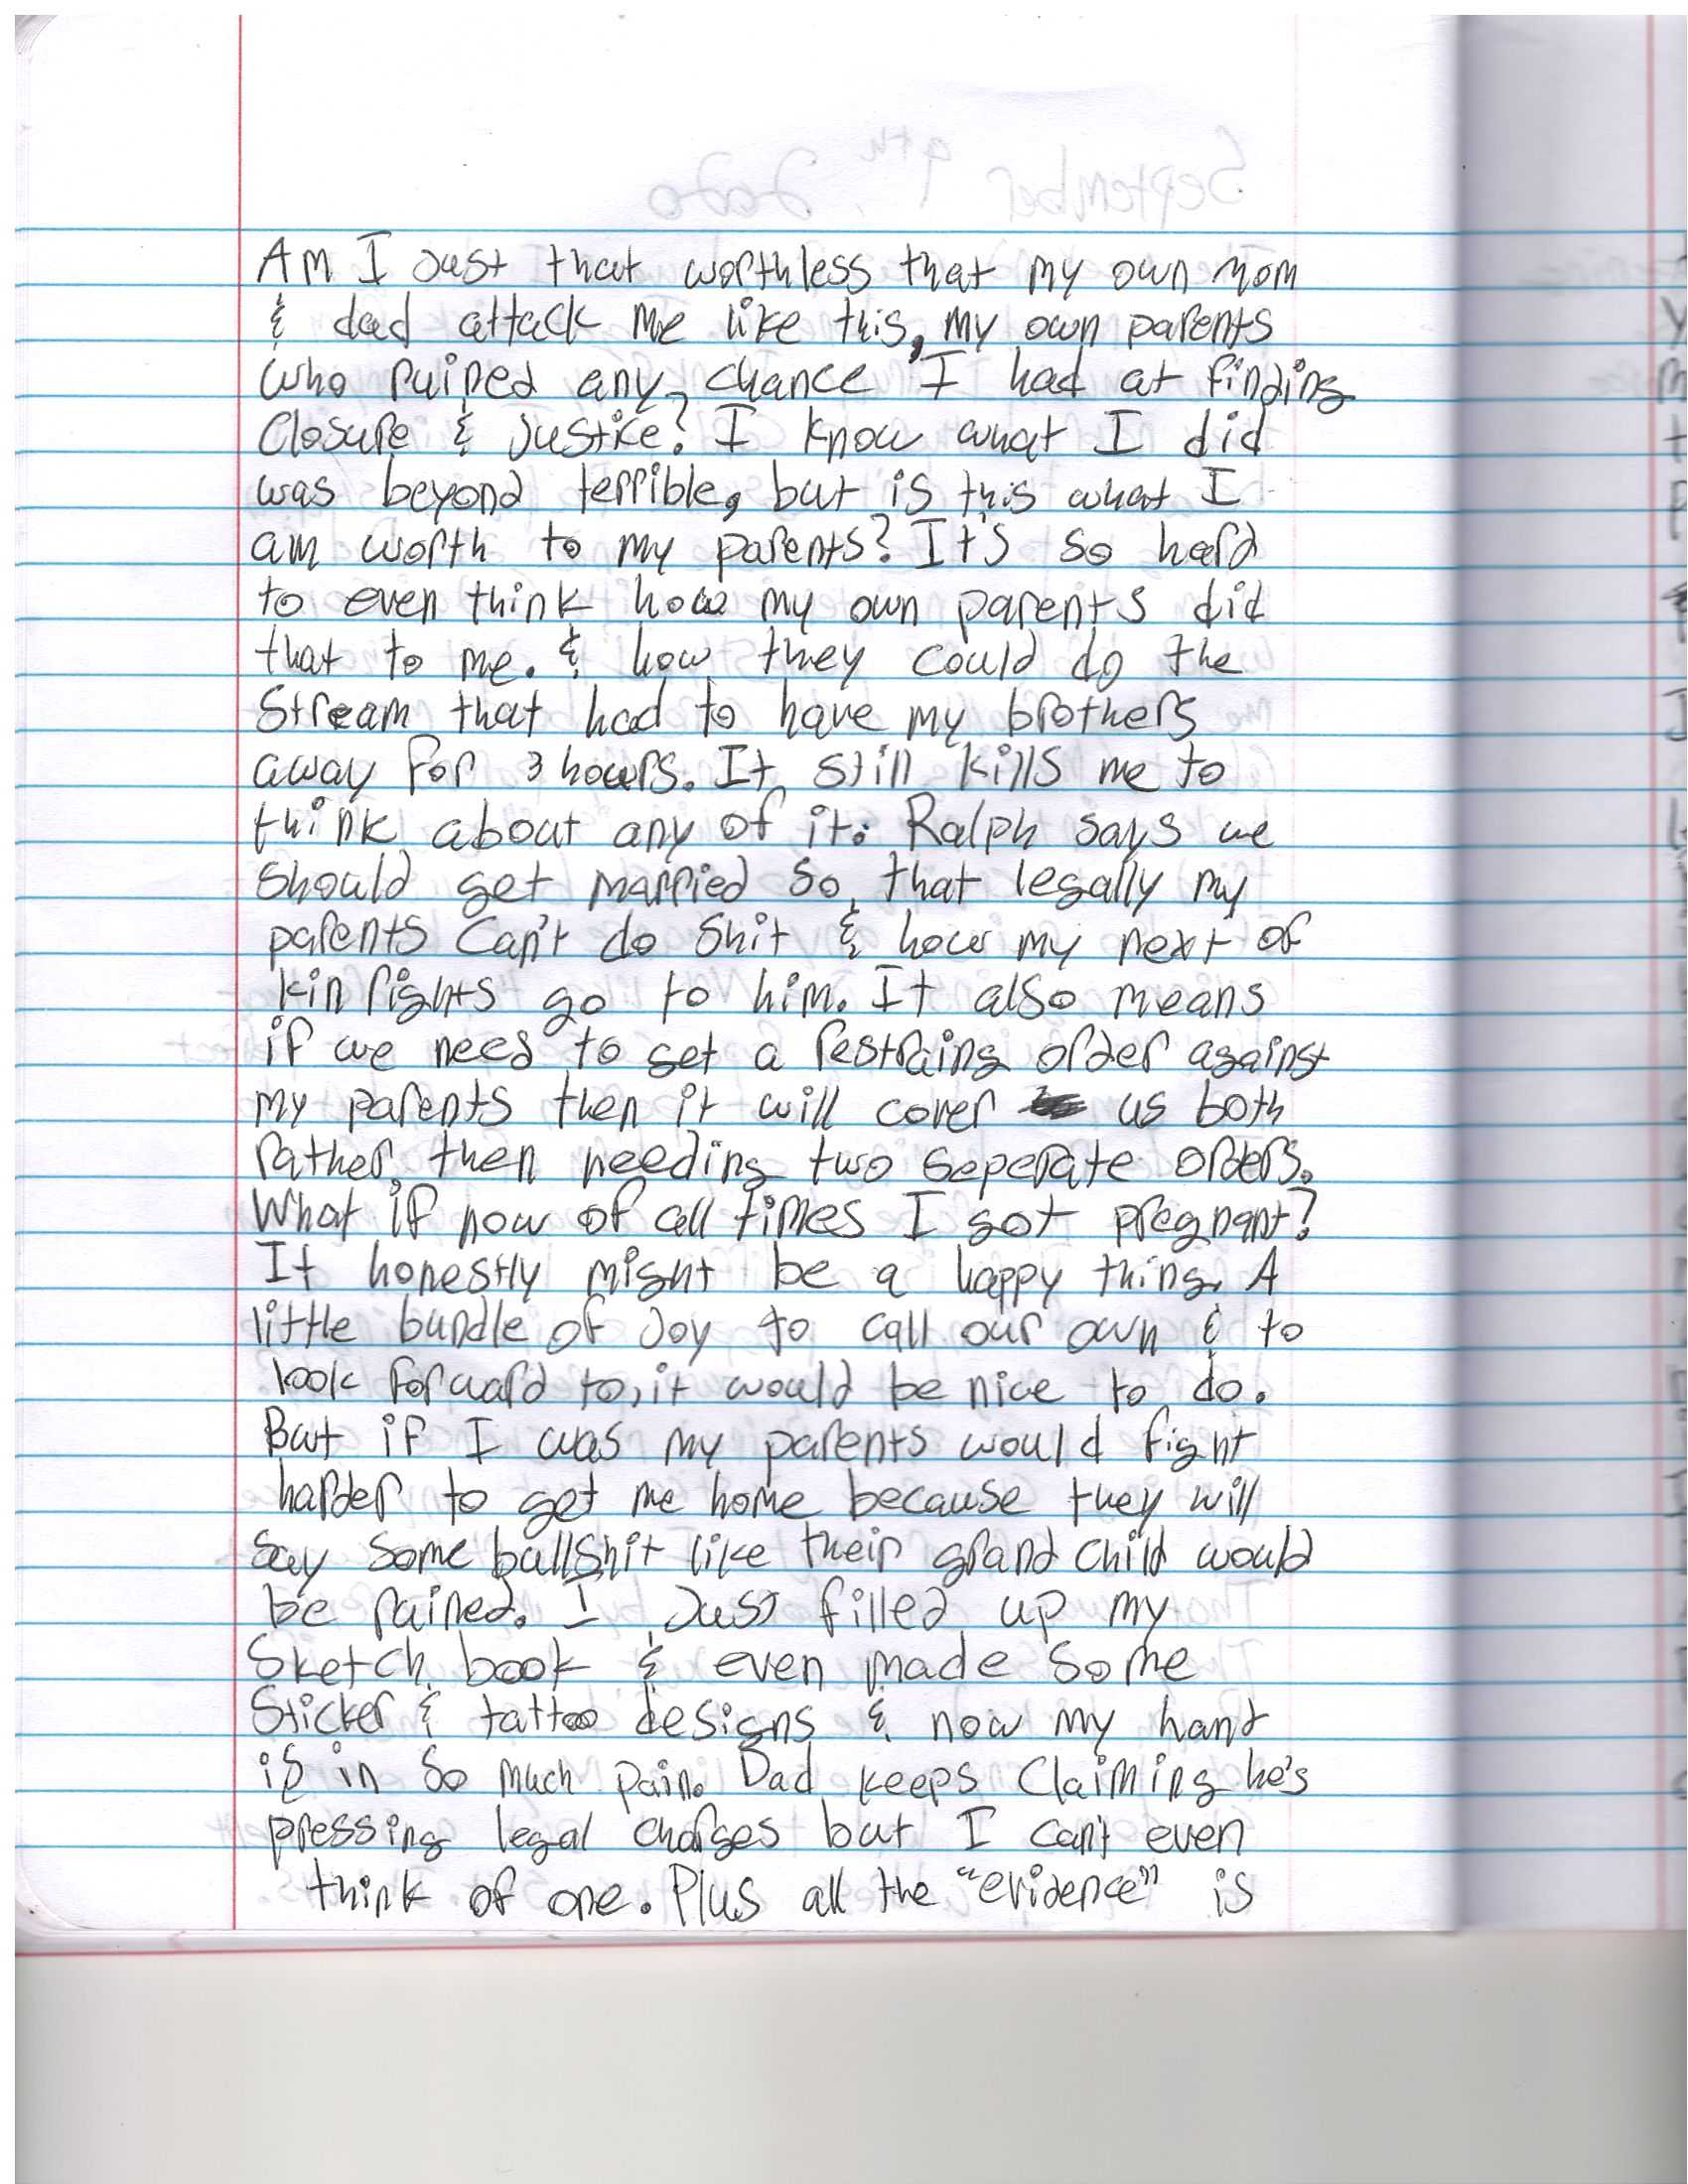 September 9th, 2020
Am I Just that worthless that my own mom
& dad attack me like this, my own parents
who ruined any chance I had at finding
Closure & Justice? I know what I did
was beyond terrible, but is this what I
am worth to my parents? It's so hard
to even think how my own parents did
that to me. & how they could do the
Stream that had to have my brothers
away for 3 hours. It still kills me to
think about any of it. Ralph says we
should get married so that legally my
parents Can't do Shit & how my next of
kin rights go to him. It also means
if we need to get a restraing order against
my parents then it will cover us both
rather then needing two seperate orders.
What if now of all times I got pregnant?
It honestly might be a happy thing. A
little bundle of Joy to call our own & to
look forward to, it would be nice to do.
But if I was my parents would fight
harder to get me home because they will
say some bullshit like their grand child would
be ruined. I Just filled up my
Sketch book & even made some
Sticker & tattoo designs & now my hand
is in so much pain. Dad keeps Claiming he's
pressing legal charges but I can't even
think of one. Plus all the "evidence" is